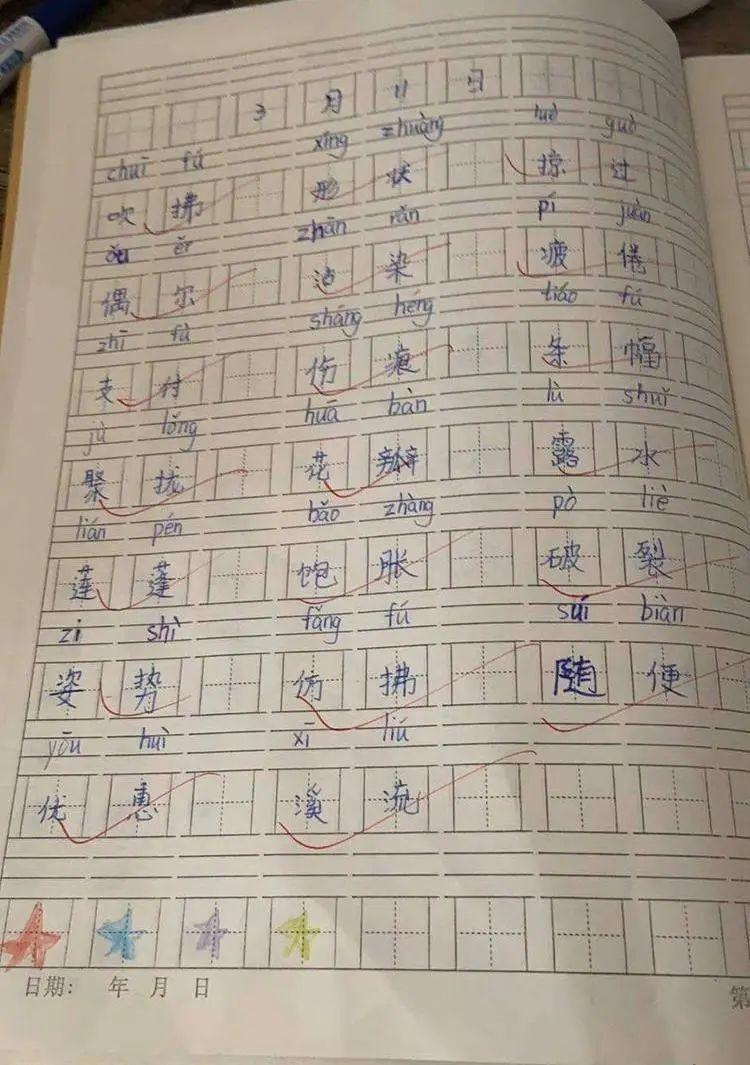 3 月 11 日
chuī fú xíng zhuàng luè guò
吹 拂 形 状 掠 过
ǒu ěr zhān rǎn pí juàn
偶 尔 沾 染 疲 倦
zhī fù shāng hén tiáo fú
支 付 伤 痕 条 幅
jù lǒng huā bàn lù shuǐ
聚 拢 花 瓣 露 水
lián pén bǎo zhàng pò liè
莲 蓬 饱 胀 破 裂
zī shì fǎng fú suí biàn
姿 势 仿 拂 随 便
yōu huì xī liú
优 惠 溪 流
日期： 年 月 日
第